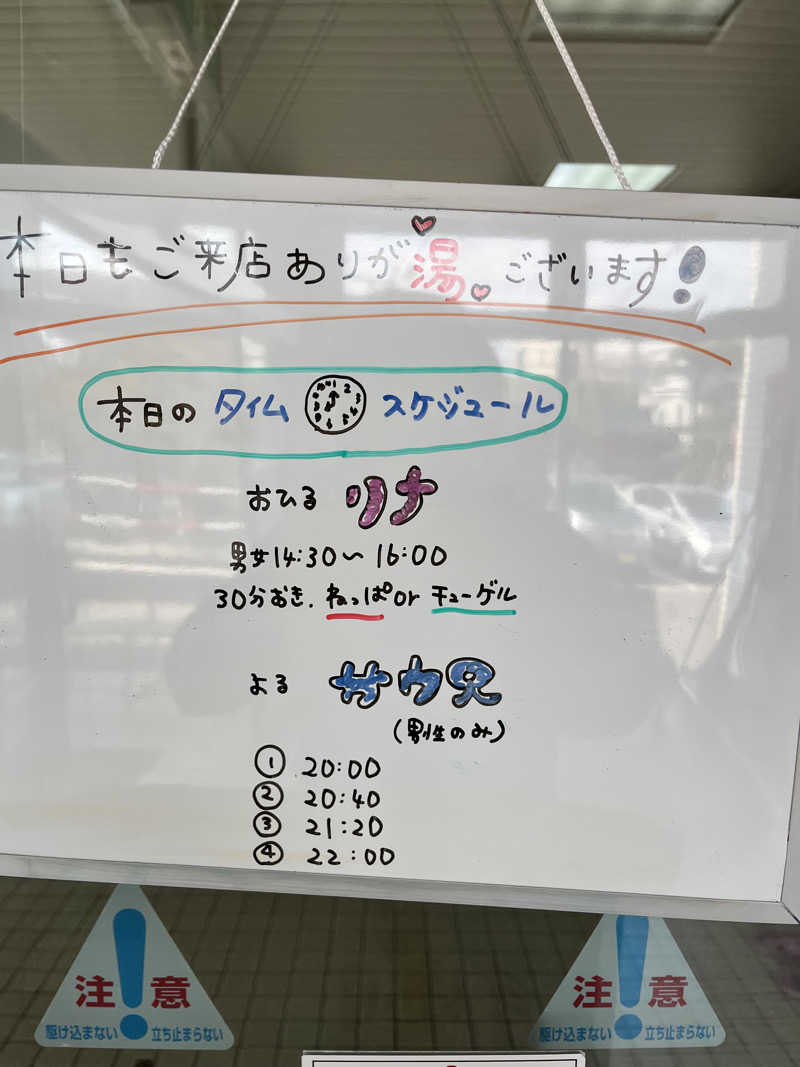 本日もご来店ありが湯ございます!
本日のタイムスケジュール
おひる リナ
男女14:30〜16:00
30分おき.ねっぱorチューゲル
よる サウ兄
(男性のみ)
① 20:00
② 20:40
③ 21:20
④ 22:00
注!意
駆け込まない 立ち止まらない
注!意
駆け込まない 立ち止まらない